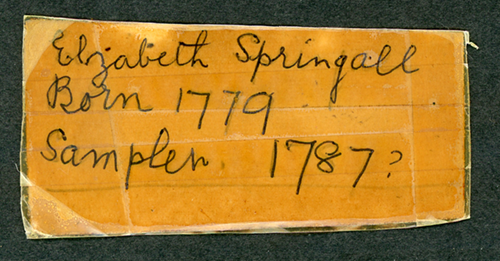 Elizabeth Springall
Born 1779
Sampler. 1787?